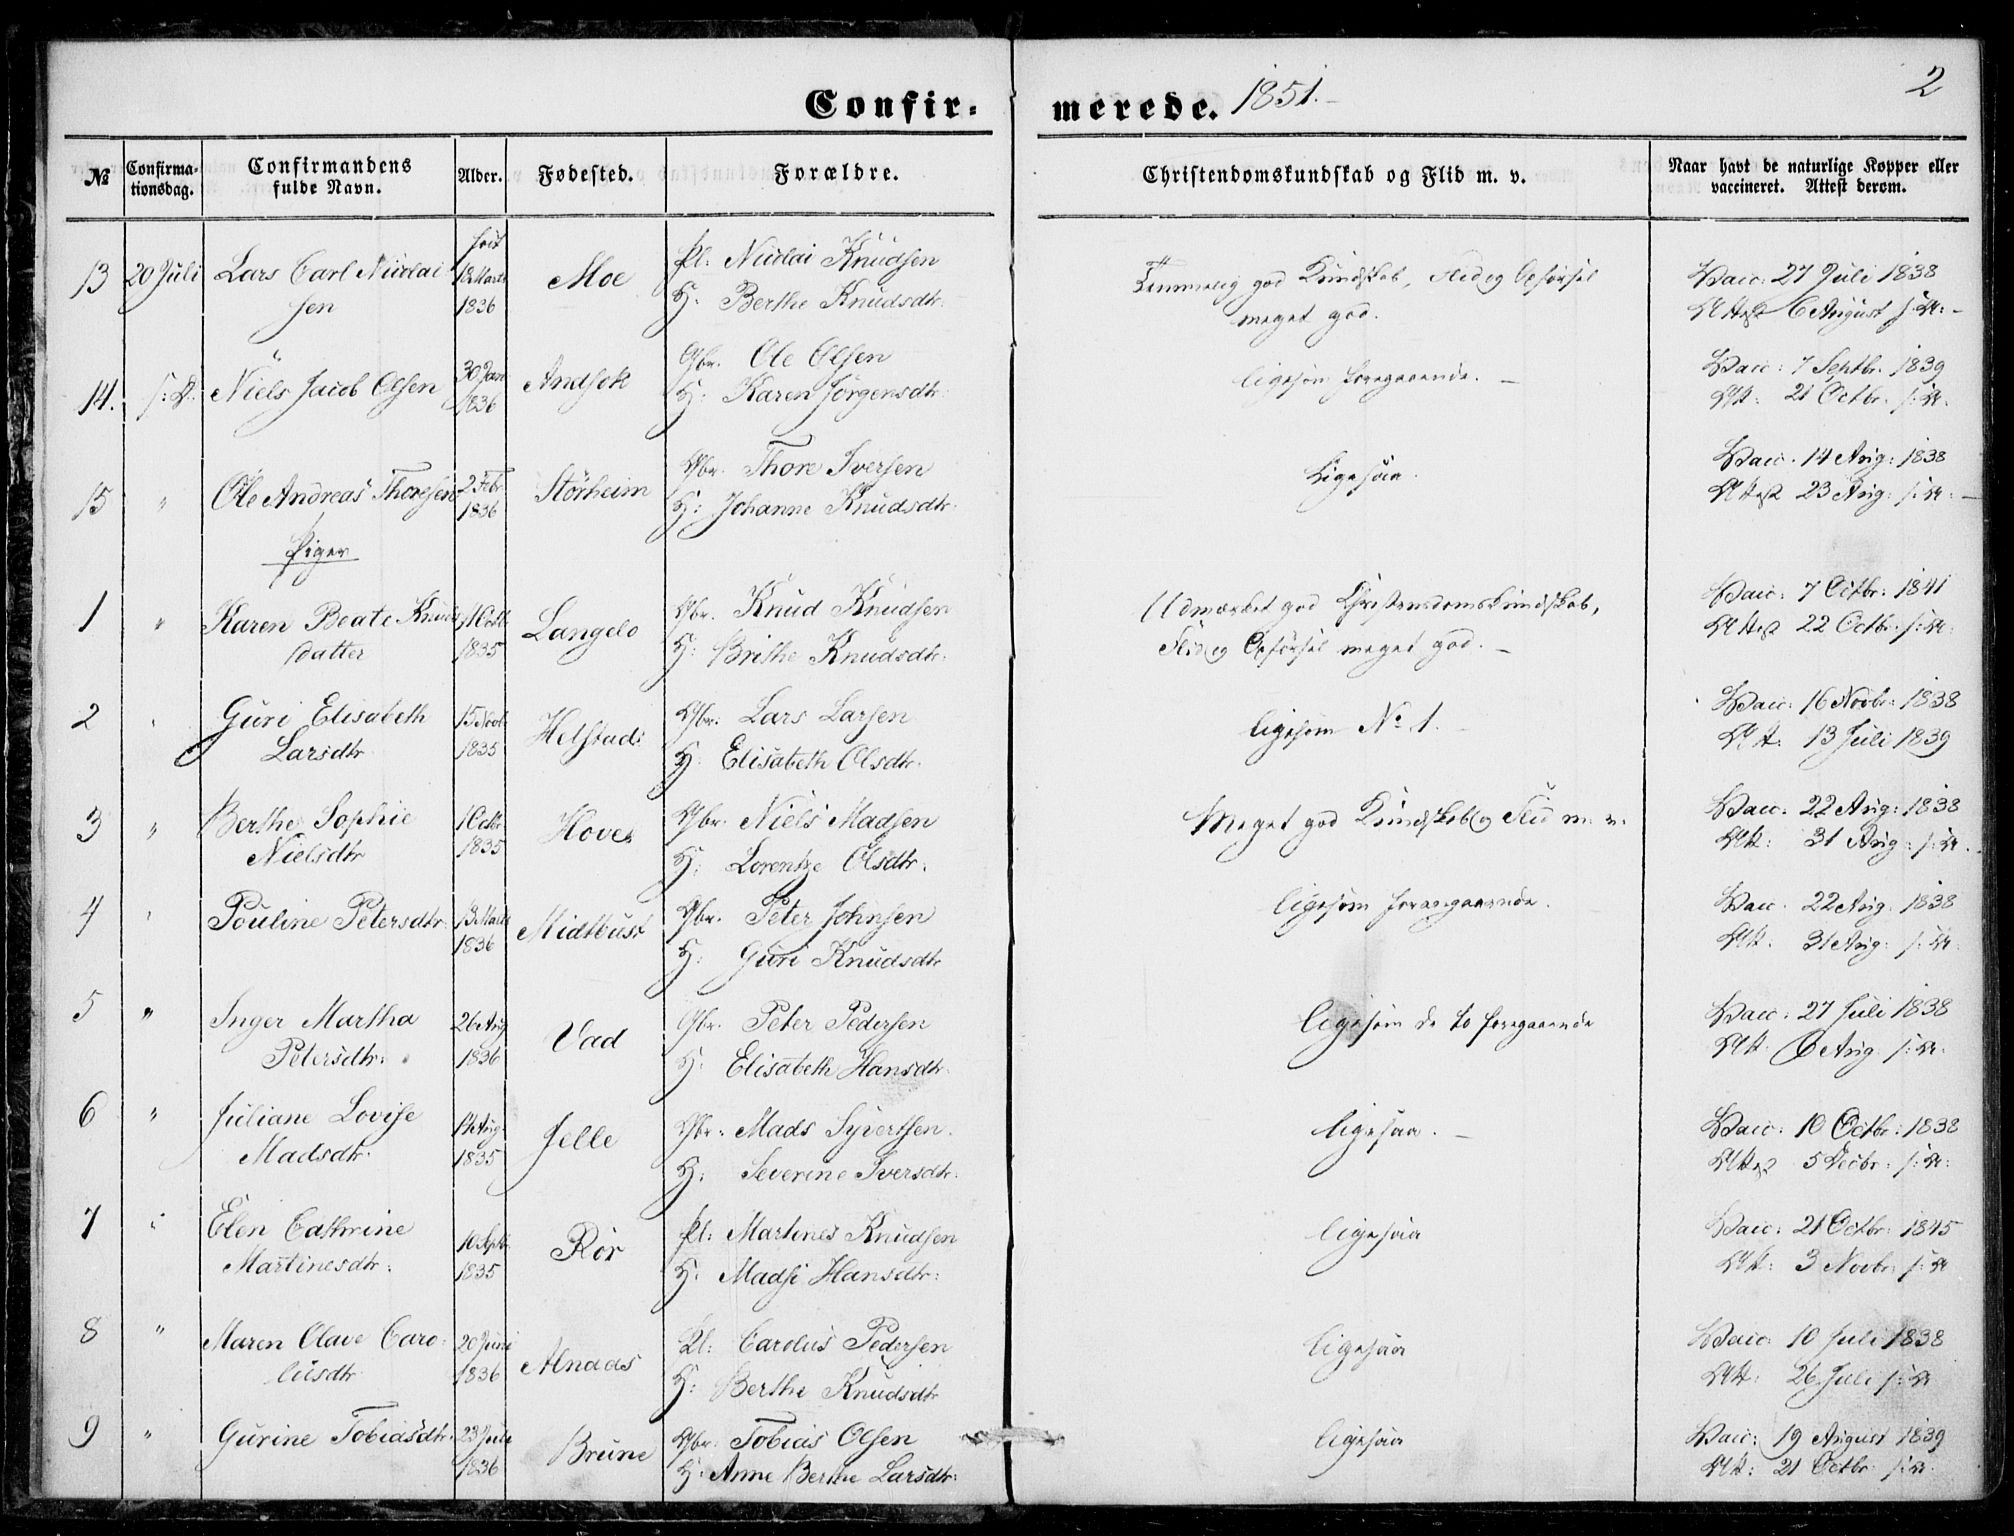 Confirmerede. 1851.
2
No
Confirmationsdag.
Confirmandens fulde Navn.
Alder.
Fødested.
Forældre.
Christendomskundskab og Flid m. v.
Naar havt de naturlige Kopper eller vaccineret. Attest derom.
13 20 Juli Lars Carl Nicolai født Moe Pl: Nicolai Knudsen Temmelig god Kundskab, Flid og Opførsel Vacc: 27 Juli 1838
sen 1836 H: Berthe Knudsdtr. meget god. Attest 6 August s: A:
14. s: D. Niels Jacob Olsen 30 Jan Andsok Gbr. Ole Olsen ligesom foregaaende. Vacc: 7 Septbr. 1839
1836 H: Karen Jørgensdtr. Att: 21 Octbr. s: A.
15 " Ole Andreas Thoresen 2 Febr. Størheim Gbr. Thore Iversen Ligesaa. Vacc. 14 Aug: 1838
1836 H: Johanne Knudsdtr. Attest 23 Aug: s: A:
Piger
1 " Karen Beate Knuds Langelo Gbr. Knud Knudsen Udmærket god Christendomskundskab, Vacc: 7 Octbr: 1841
datter 1835 H: Brithe Knudsdtr. Flid og Opførsel meget god. Attest 22 Octbr. s: A:
2 " Guri Elisabeth 15 Novb Helstad Gbr. Lars Larsen ligesom No 1. Vacc: 16 Novbr: 1838
Larsdtr 1835 H. Elisabeth Olsdtr. Att: 13 Juli 1839
3 " Berthe Sophie 1 Octbr Hove Gbr. Niels Madsen Meget god Kundskab og Flid m: v: Vacc: 22 Aug: 1838
Nielsdtr 1835 H: Lorentze Olsdtr. Att: 31 Aug: s: A.
4 " Pouline Petersdtr. 13 Marts Midtbust Gbr. Peter Johnsen ligesom foregaaende. Vacc. 22 Aug. 1838
1836 H: Guri Knudsdtr Att. 31 Aug: s: A:
5 " Inger Martha 26 Aug Vad Gbr. Peter Pedersen ligesom de to foregaaende Vacc: 27 Juli 1838
Petersdtr. 1836 H. Elisabeth Hansdtr. Att. 6 Aug. s: A:
6 " Juliane Lovise 14 Aug. Jelle Gbr: Mads Syvertsen. ligesaa. Vacc: 10 Octbr: 1838
Madsdtr. 1835 H: Severine Iversdtr. Attest 5 Decbr: s: A:
7 " Elen Cathrine 10 Septb Rör Pl: Martines Knudsen ligesaa Vacc: 21 Octbr: 1845
Martinesdtr. 1835 H. Madsi Hansdtr: Att: 3 Novbr: s: A
8 " Maren Olave Caro- 20 Juni Alnaas Pl: Carolus Pedersen ligesaa Vacc: 10 Juli 1838
lusdtr 1836 H: Berthe Knudsdtr Att: 26 Juli s: A
9 " Gurine Tobiasdtr. 23 Juli Brune Gbr: Tobias Olsen ligesaa Vacc: 19 August 1839
1836 H: Anne Berthe Larsdtr: Att: 21 Octbr. s: A.